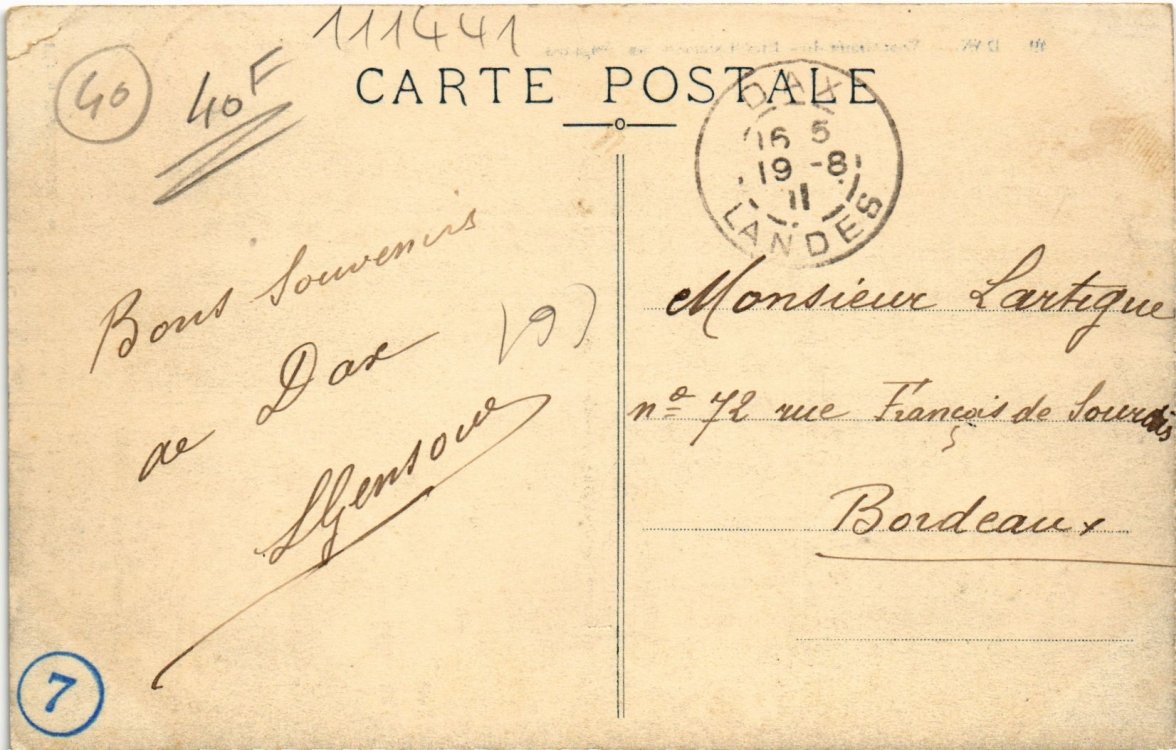 111441
40
40F
CARTE POSTALE
DAX
16 5
19 -8
11
LANDES
Bons Souvenirs
de Dax
(9)
Monsieur Lartigue
nº 72 rue François de Sourdis
Bordeaux
7